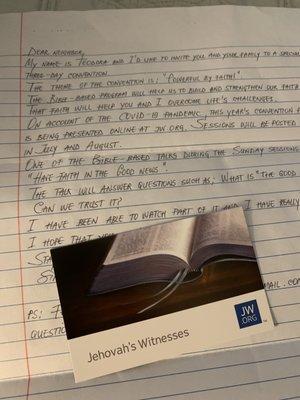 DEAR NEIGHBOR,
MY NAME IS TEODORA AND I'D LIKE TO INVITE YOU AND YOUR FAMILY TO A SPECIAL
THREE-DAY CONVENTION.
THE THEME OF THE CONVENTION IS: "POWERFUL BY FAITH!"
THE BIBLE-BASED PROGRAM WILL HELP US TO BUILD AND STRENGTHEN OUR FAITH
THAT FAITH WILL HELP YOU AND I OVERCOME LIFE'S CHALLENGES.
ON ACCOUNT OF THE COVID-19 PANDEMIC, THIS YEAR'S CONVENTION
IS BEING PRESENTED ONLINE AT JW.ORG. SESSIONS WILL BE POSTED
IN JULY AND AUGUST.
ONE OF THE BIBLE-BASED TALKS DURING THE SUNDAY SESSIONS
"HAVE FAITH IN THE GOOD NEWS".
THE TALK WILL ANSWER QUESTIONS SUCH AS; WHAT IS "THE GOOD
CAN WE TRUST IT?
I HAVE BEEN ABLE TO WATCH PART OF IT AND I HAVE REALLY
I HOPE THAT
PS:
QUESTION
JW
.ORG
Jehovah's Witnesses